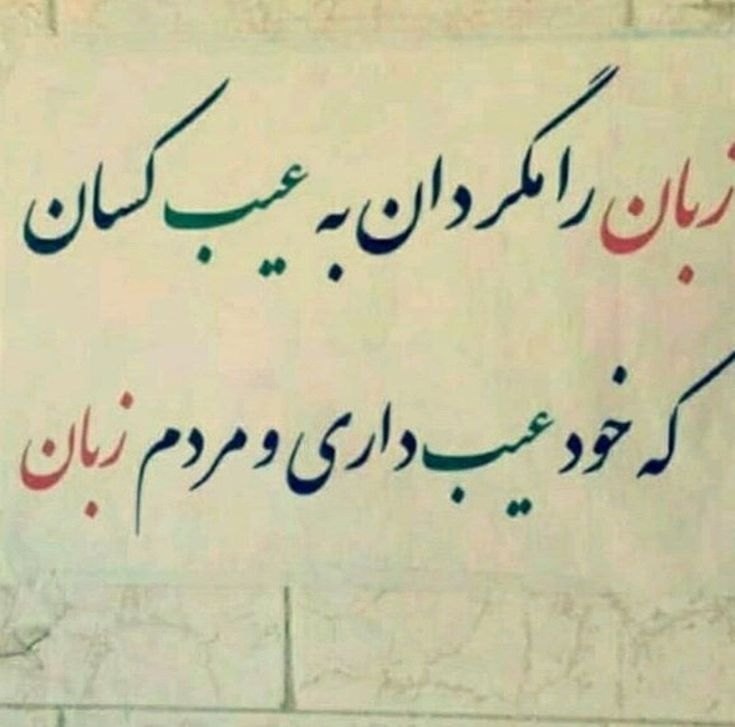 زبان را مگردان به عیب کسان
که خود عیب داری و مردم زبان